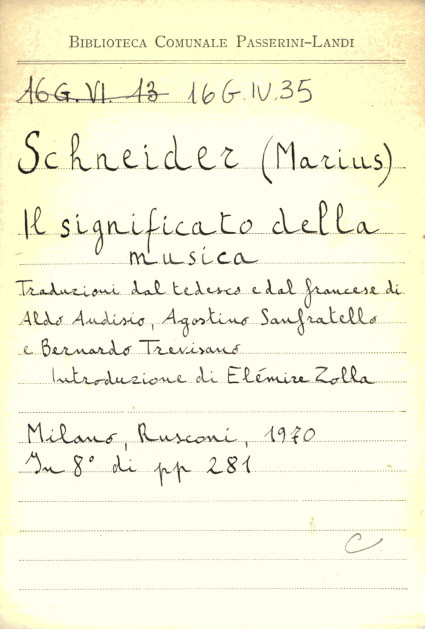 Biblioteca Comunale Passerini-Landi
16G.VI.13 16G.IV.35
Schneider (Marius)
Il significato della
musica
Traduzioni dal tedesco e dal francese di
Aldo Audisio, Agostino Sanfratello
e Bernardo Trevisano
Introduzione di Elémire Zolla
Milano, Rusconi, 1970
In 8° di pp 281
C